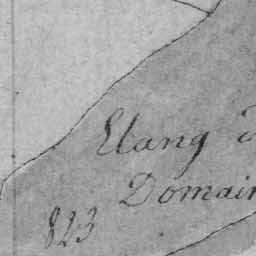 Etang
Domain
823